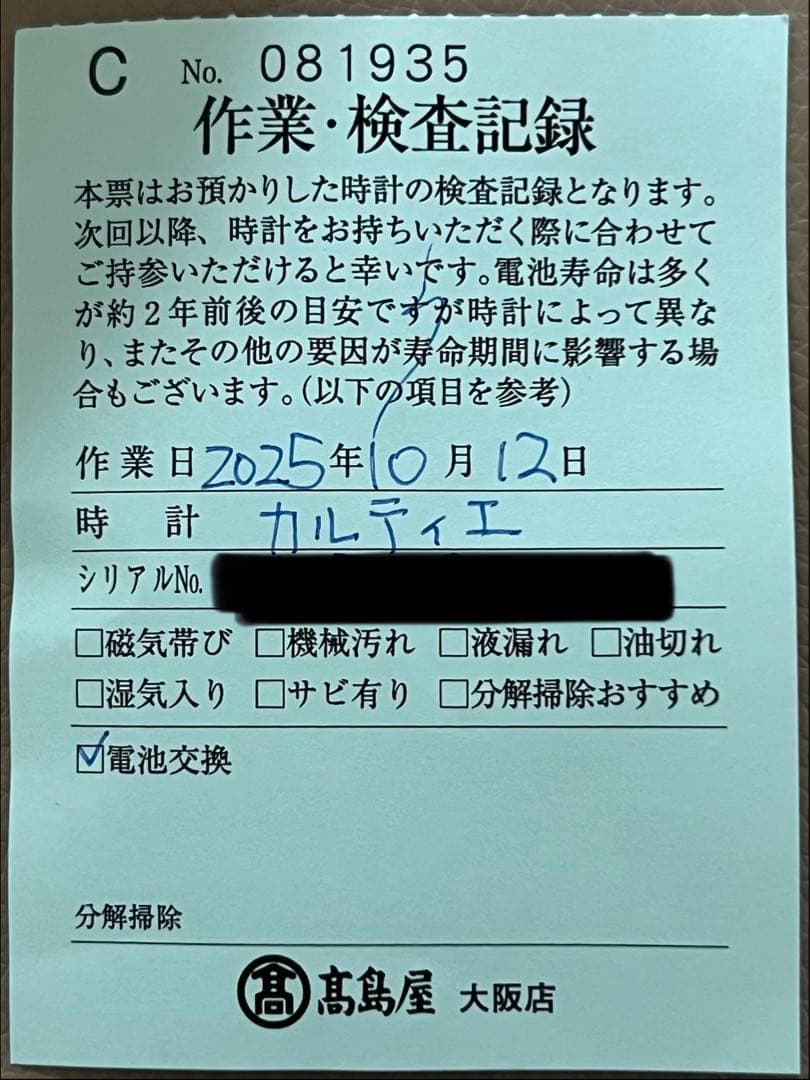 C No. 081935
作業・検査記録
本票はお預かりした時計の検査記録となります。
次回以降、時計をお持ちいただく際に合わせて
ご持参いただけると幸いです。電池寿命は多く
が約2年前後の目安ですが時計によって異な
り、またその他の要因が寿命期間に影響する場
合もございます。(以下の項目を参考)
作業日 2025年10月12日
時計 カルティエ
シリアルNo.
□磁気帯び □機械汚れ □液漏れ □油切れ
□湿気入り □サビ有り □分解掃除おすすめ
☑電池交換
分解掃除
髙 髙島屋 大阪店